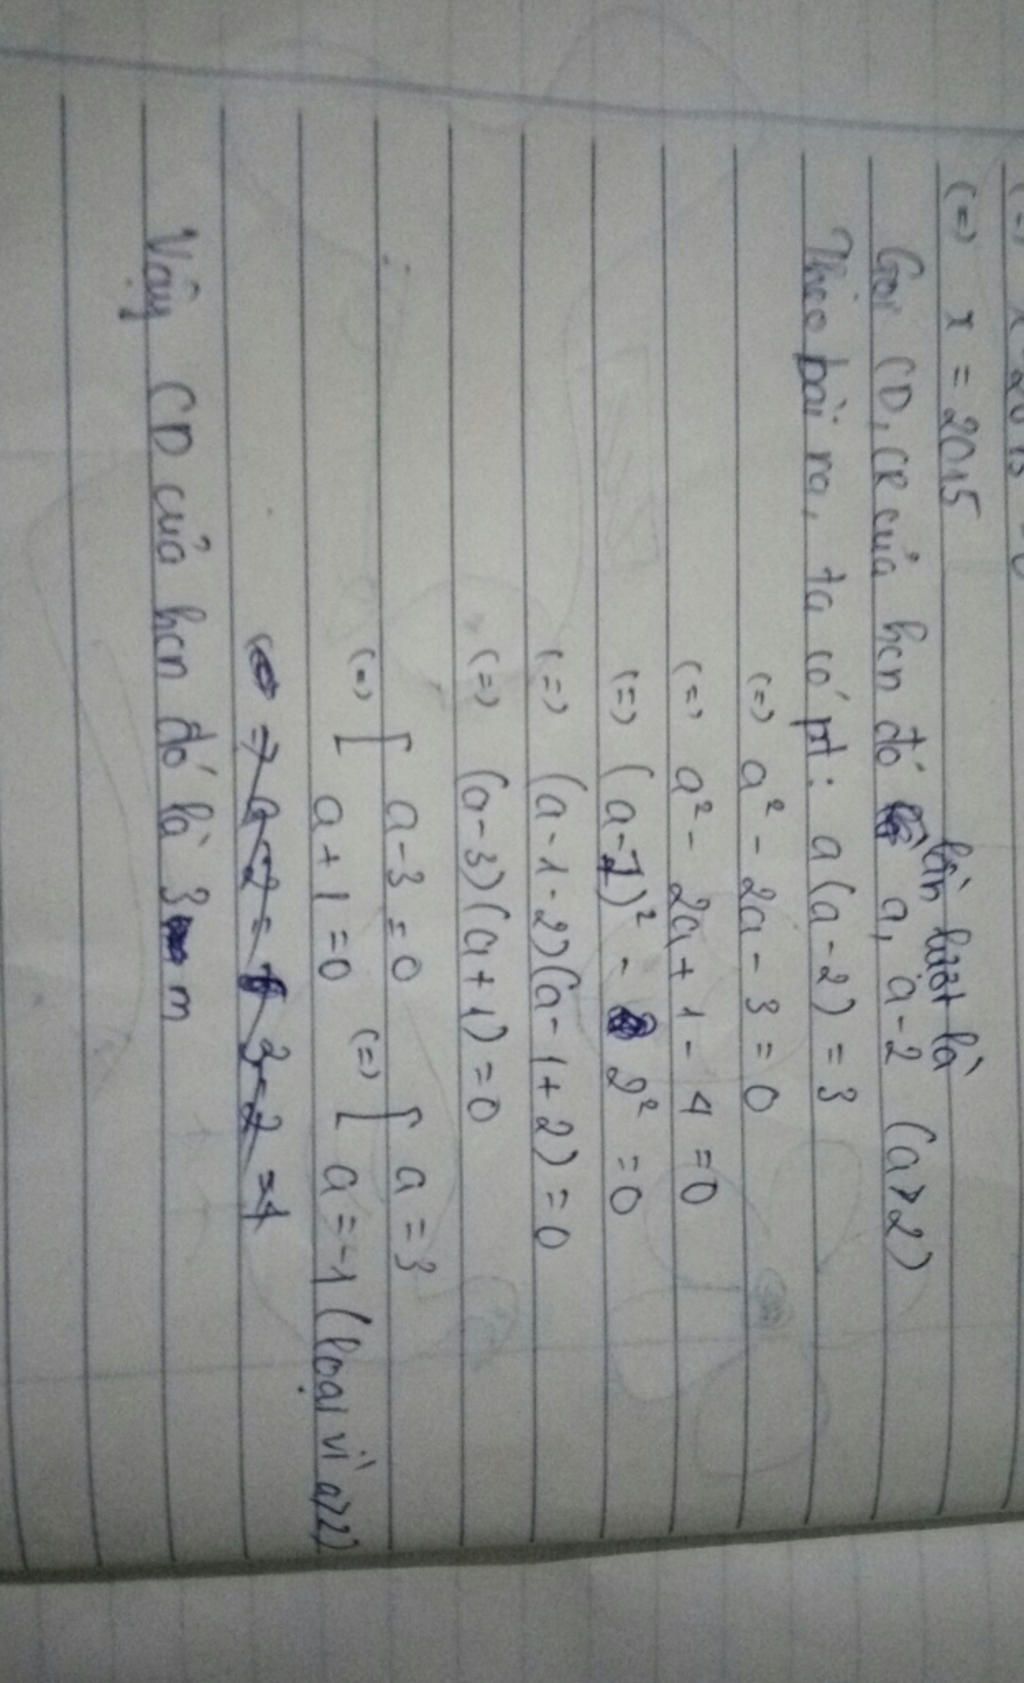 (=) x = 2015
Gọi CD, CR của hcn đó lần lượt là a, a-2 (a>2)
Theo bài ra, ta có pt: a(a-2) = 3
(=) a² - 2a - 3 = 0
(=) a² - 2a + 1 - 4 = 0
(=) (a-1)² - 2² = 0
(=) (a-1-2)(a-1+2) = 0
(=) (a-3)(a+1) = 0
(=) [ a-3=0 (=) [ a=3
a+1=0 a=-1 (loại vì a>2)
Vậy CD của hcn đó là 3 m